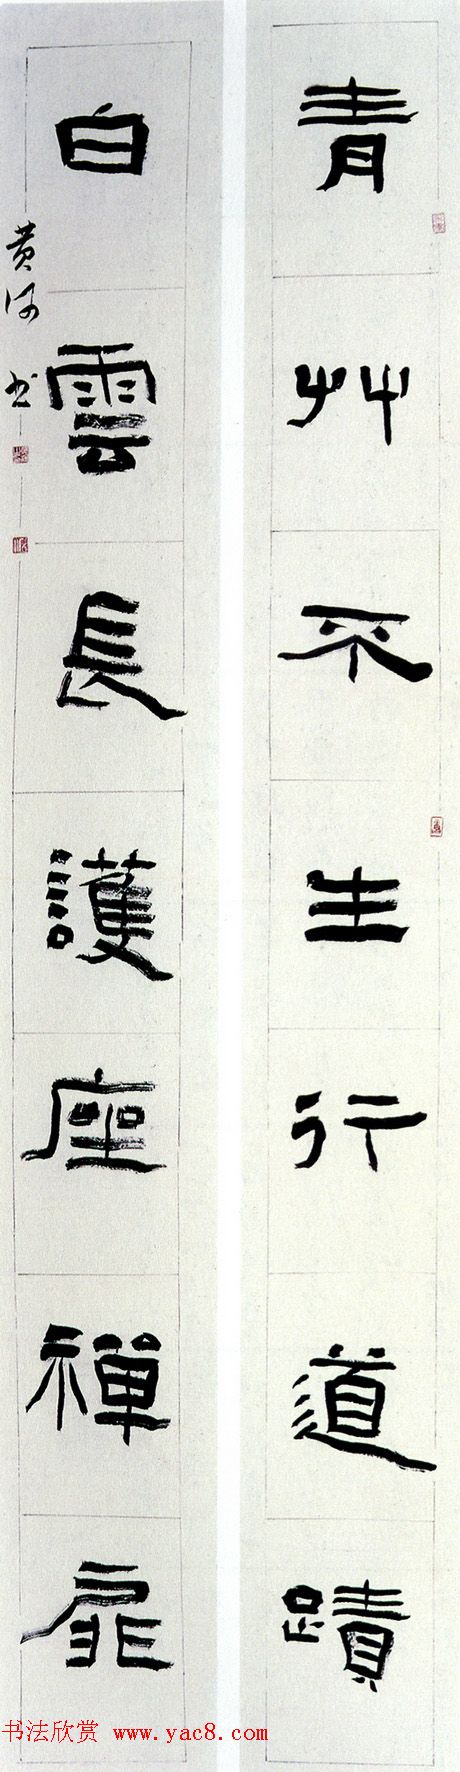 青艸不生行道蹟
白雲長護座禪扉
黄河书
书法欣赏 www.yac8.com